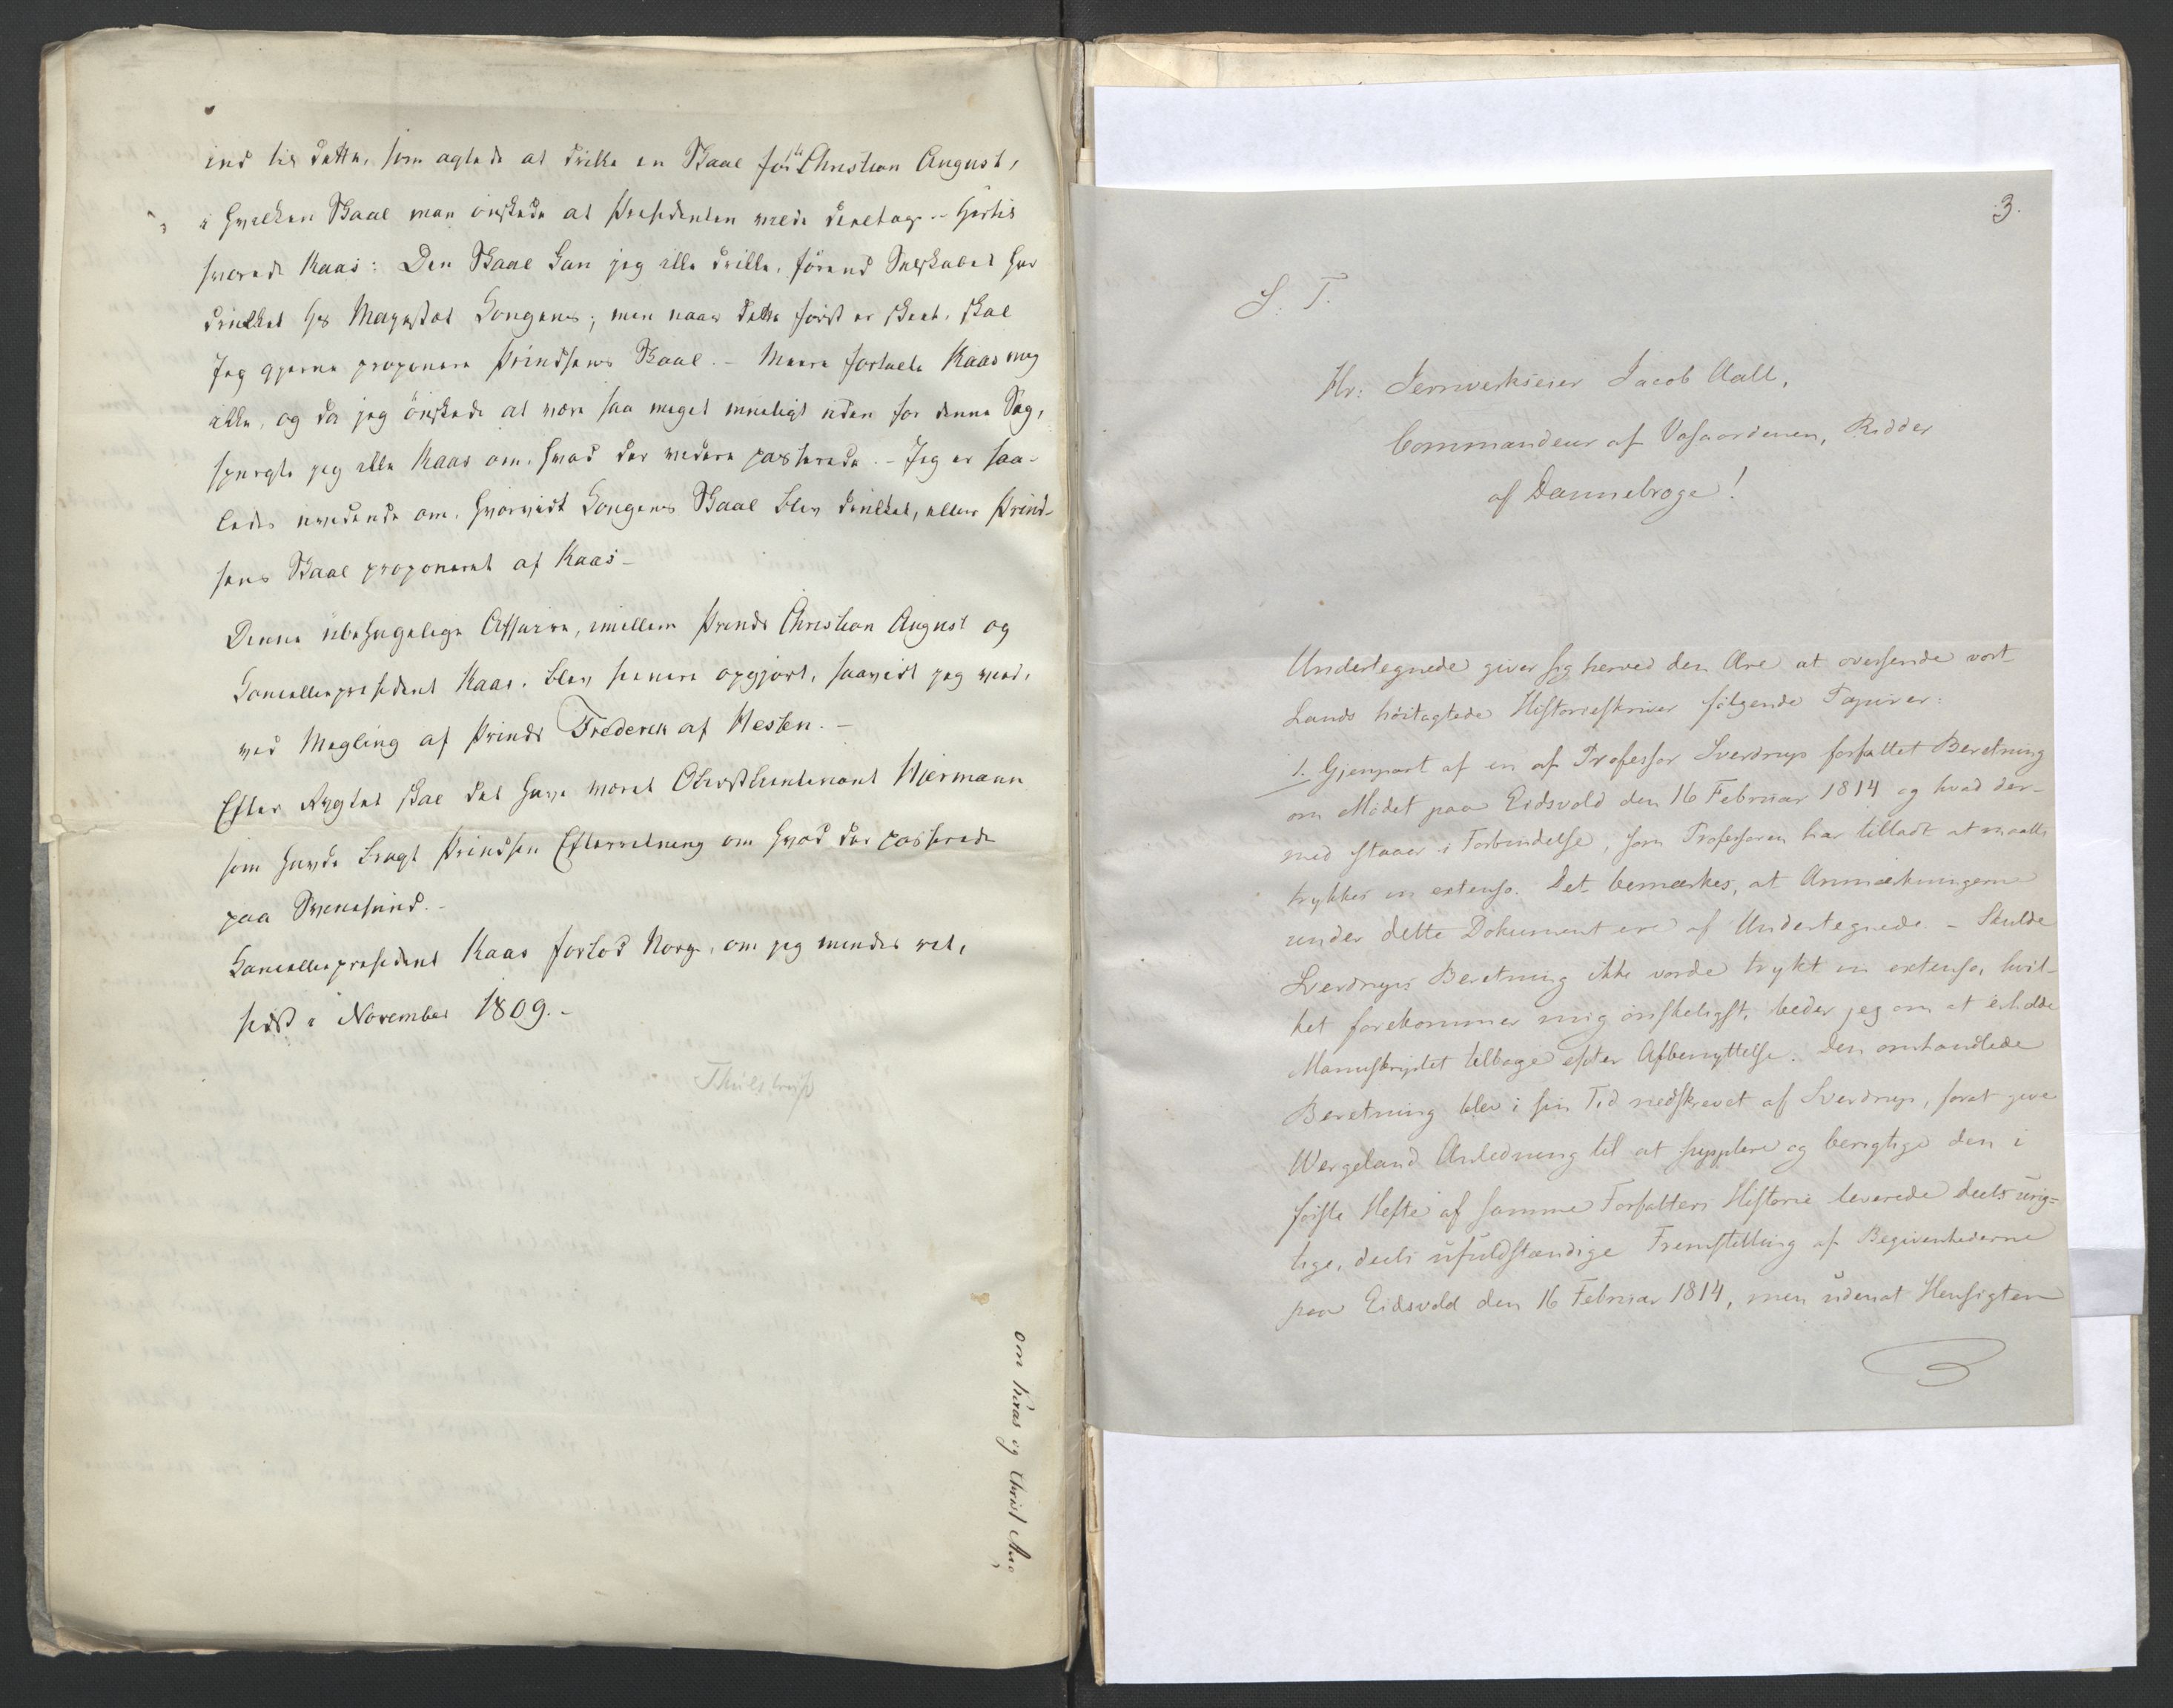 ind til dette, som agtede at drikke en Skaal for Christian August,
i hvilken Skaal man önskede at Præsidenten vilde deeltage. – Hertil
svarede Kaas: Den Skaal kan jeg ikke drikke, förend Selskabet har
drukket Hs Majestæt Kongens; men naar dette först er skeet, skal
Jeg gjerne proponere Prindsens Skaal. – Meere fortalte Kaas mig
ikke, og da jeg önskede at være saa meget mueligt uden for denne Sag,
spurgte jeg ikke Kaas om, hvad der videre passerede. – Jeg er saa-
ledes uvidende om, hvorvidt Kongens Skaal blev drukket, eller Prind-
sens Skaal proponeret af Kaas –
Denne ubehagelige Affaire, imellem Prinds Christian August og
Cancelliepræsident Kaas, blev senere opgjort, saavidt jeg veed,
ved Megling af Prinds Frederik af Hessen. –
Efter Rygtet skal det have været Oberstlieutenant Hiermann
som havde bragt Prindsen Efterretning om hvad der passerede
paa Svenesund. –
Cancelliepræsident Kaas forlod Norge, om jeg mindes ret,
sidst i November 1809. –
Thulstrup
om Kaas og Christ Aug
3.
S. T.
Hr: Jernverkseier Jacob Aall,
Commandeur af Vasaordenen, Ridder
af Dannebroge!
Undertegnede giver sig herved den Ære at oversende vort
Lands höitagtede Historieskriver følgende Papirer:
1. Gjenpart af en af Professor Sverdrup forfattet Beretning
om Mödet paa Eidsvold den 16 Februar 1814 og hvad der-
med staaer i Forbindelse, som Professoren har tilladt at maatte
trykkes in extenso. Det bemærkes, at Anmærkningerne
under dette Dokument ere af Undertegnede. – Skulde
Sverdrups Beretning ikke vorde trykt in extenso, hvil-
ket forekommer mig önskeligst, beder jeg om at erholde
Manuskriptet tilbage efter Afbenyttelse. Den omhandlede
Beretning blev i sin Tid nedskrevet af Sverdrup, forat give
Wergeland Anledning til at supplere og berigtige den i
förste Hefte af samme Forfatters Historie leverede deels urig-
tige, deels ufuldstændige Fremstilling af Begivenhederne
paa Eidsvold den 16 Februar 1814, men udenat Hensigten